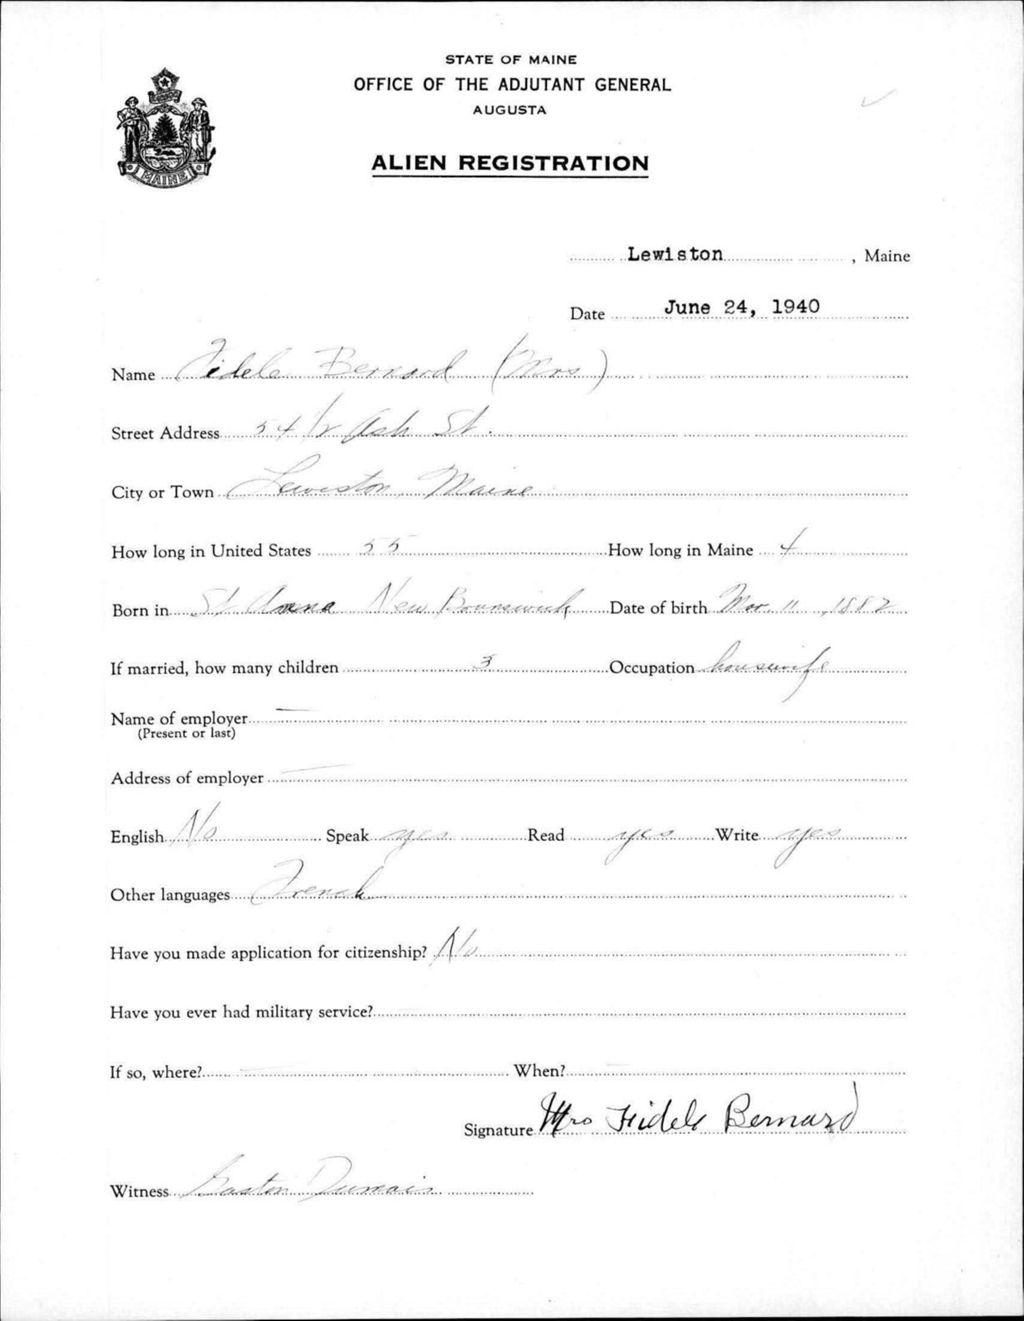 STATE OF MAINE
OFFICE OF THE ADJUTANT GENERAL
AUGUSTA
ALIEN REGISTRATION
MAINE
Lewiston, Maine
Date June 24, 1940
Name Fidele Bernard (Mrs)
Street Address 54 1/2 Ash St.
City or Town Lewiston, Maine
How long in United States 55 How long in Maine 4
Born in St Anna New Brunswick Date of birth Mar 11, 1882
If married, how many children 3 Occupation housewife
Name of employer —
(Present or last)
Address of employer —
English No Speak yes Read yes Write yes
Other languages French
Have you made application for citizenship? No
Have you ever had military service?
If so, where? When?
Signature Mrs Fidele Bernard
Witness Gaston Dumais